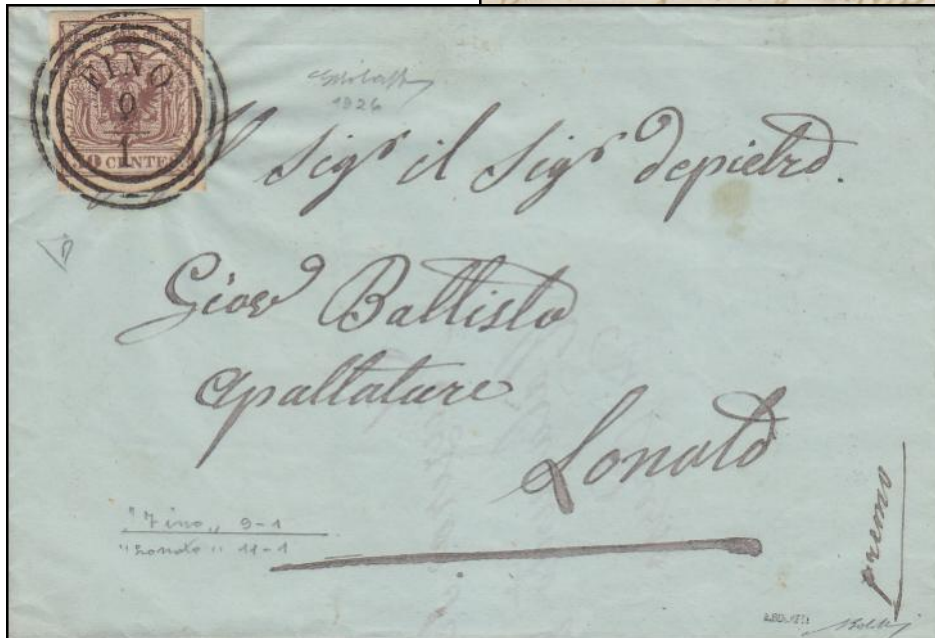 FINO
9
1
30 CENTES
1926
Al Sigr il Sigr depietro.
Giov Battista
apaltatore
Lonato
"Fino" 9-1
"Lonato" 11-1
premo
A.BOLAFFI